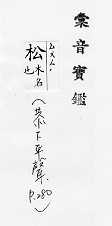 彙音寶鑑
ㄙㄨㄥˊ
松
木名
也
(恭下平聲
P.280)